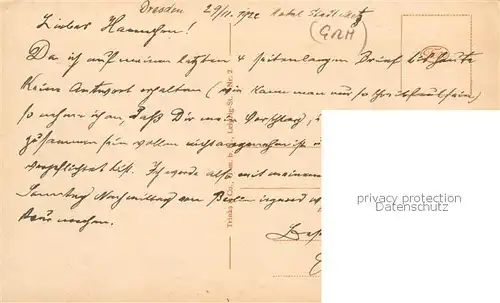 Dresden 29/11. 1920 Hotel Stadt Metz
(GRH)
Liebes Hannchen!
Da ich auf meinen letzten 4 seitenlangen Brief bis heute
keine Antwort erhalten (wie kann man nur so schreibfaul sein)
so nehme ich an, daß Dir mein Vorschlag,
zusammen sein wollen nicht angenehm ist
verpflichtet bist. Ich werde also mit meinem
Samstag Nachmittag von Berlin irgend
Tour machen.
Trinks & Co., G.m.b.H., Leipzig-St. Nr. 2
privacy protection
Datenschutz